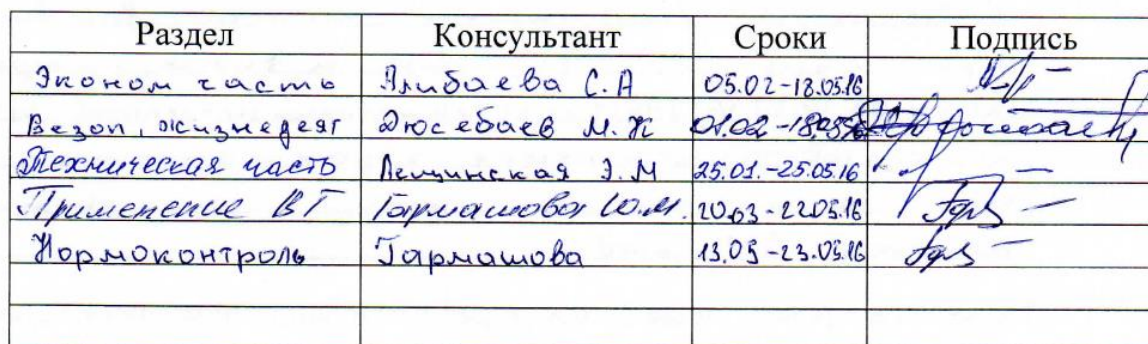 Раздел Консультант Сроки Подпись
Эконом часть Алибаева С.А 05.02-18.05.16
Безоп, жизнедеят Дюсебаев М.К 01.02-18.05.16
Техническая часть Лещинская Э.М 25.01.-25.05.16
Применение ВТ Гармашова Ю.М. 20.03-22.05.16
Нормоконтроль Гармашова 13.05-23.05.16